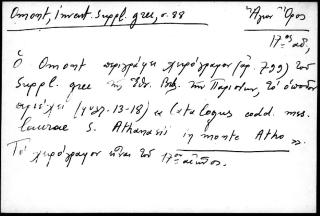 Omont, invent. Suppl. grec, σ. 88
Ἅγιον Ὄρος
17ος αἰ.
Ὁ Omont περιγράφει χειρόγραφον (ἀρ. 799) τοῦ
Suppl. grec τῆς Ἐθν. Βιβ. τῶν Παρισίων, τὸ ὁποῖον
περιέχει (φύλλ. 13-18) « Catalogus codd. mss.
laurae S. Athanasii in monte Atho ».
Τὸ χειρόγραφον εἶναι τοῦ 17ου αἰῶνος.